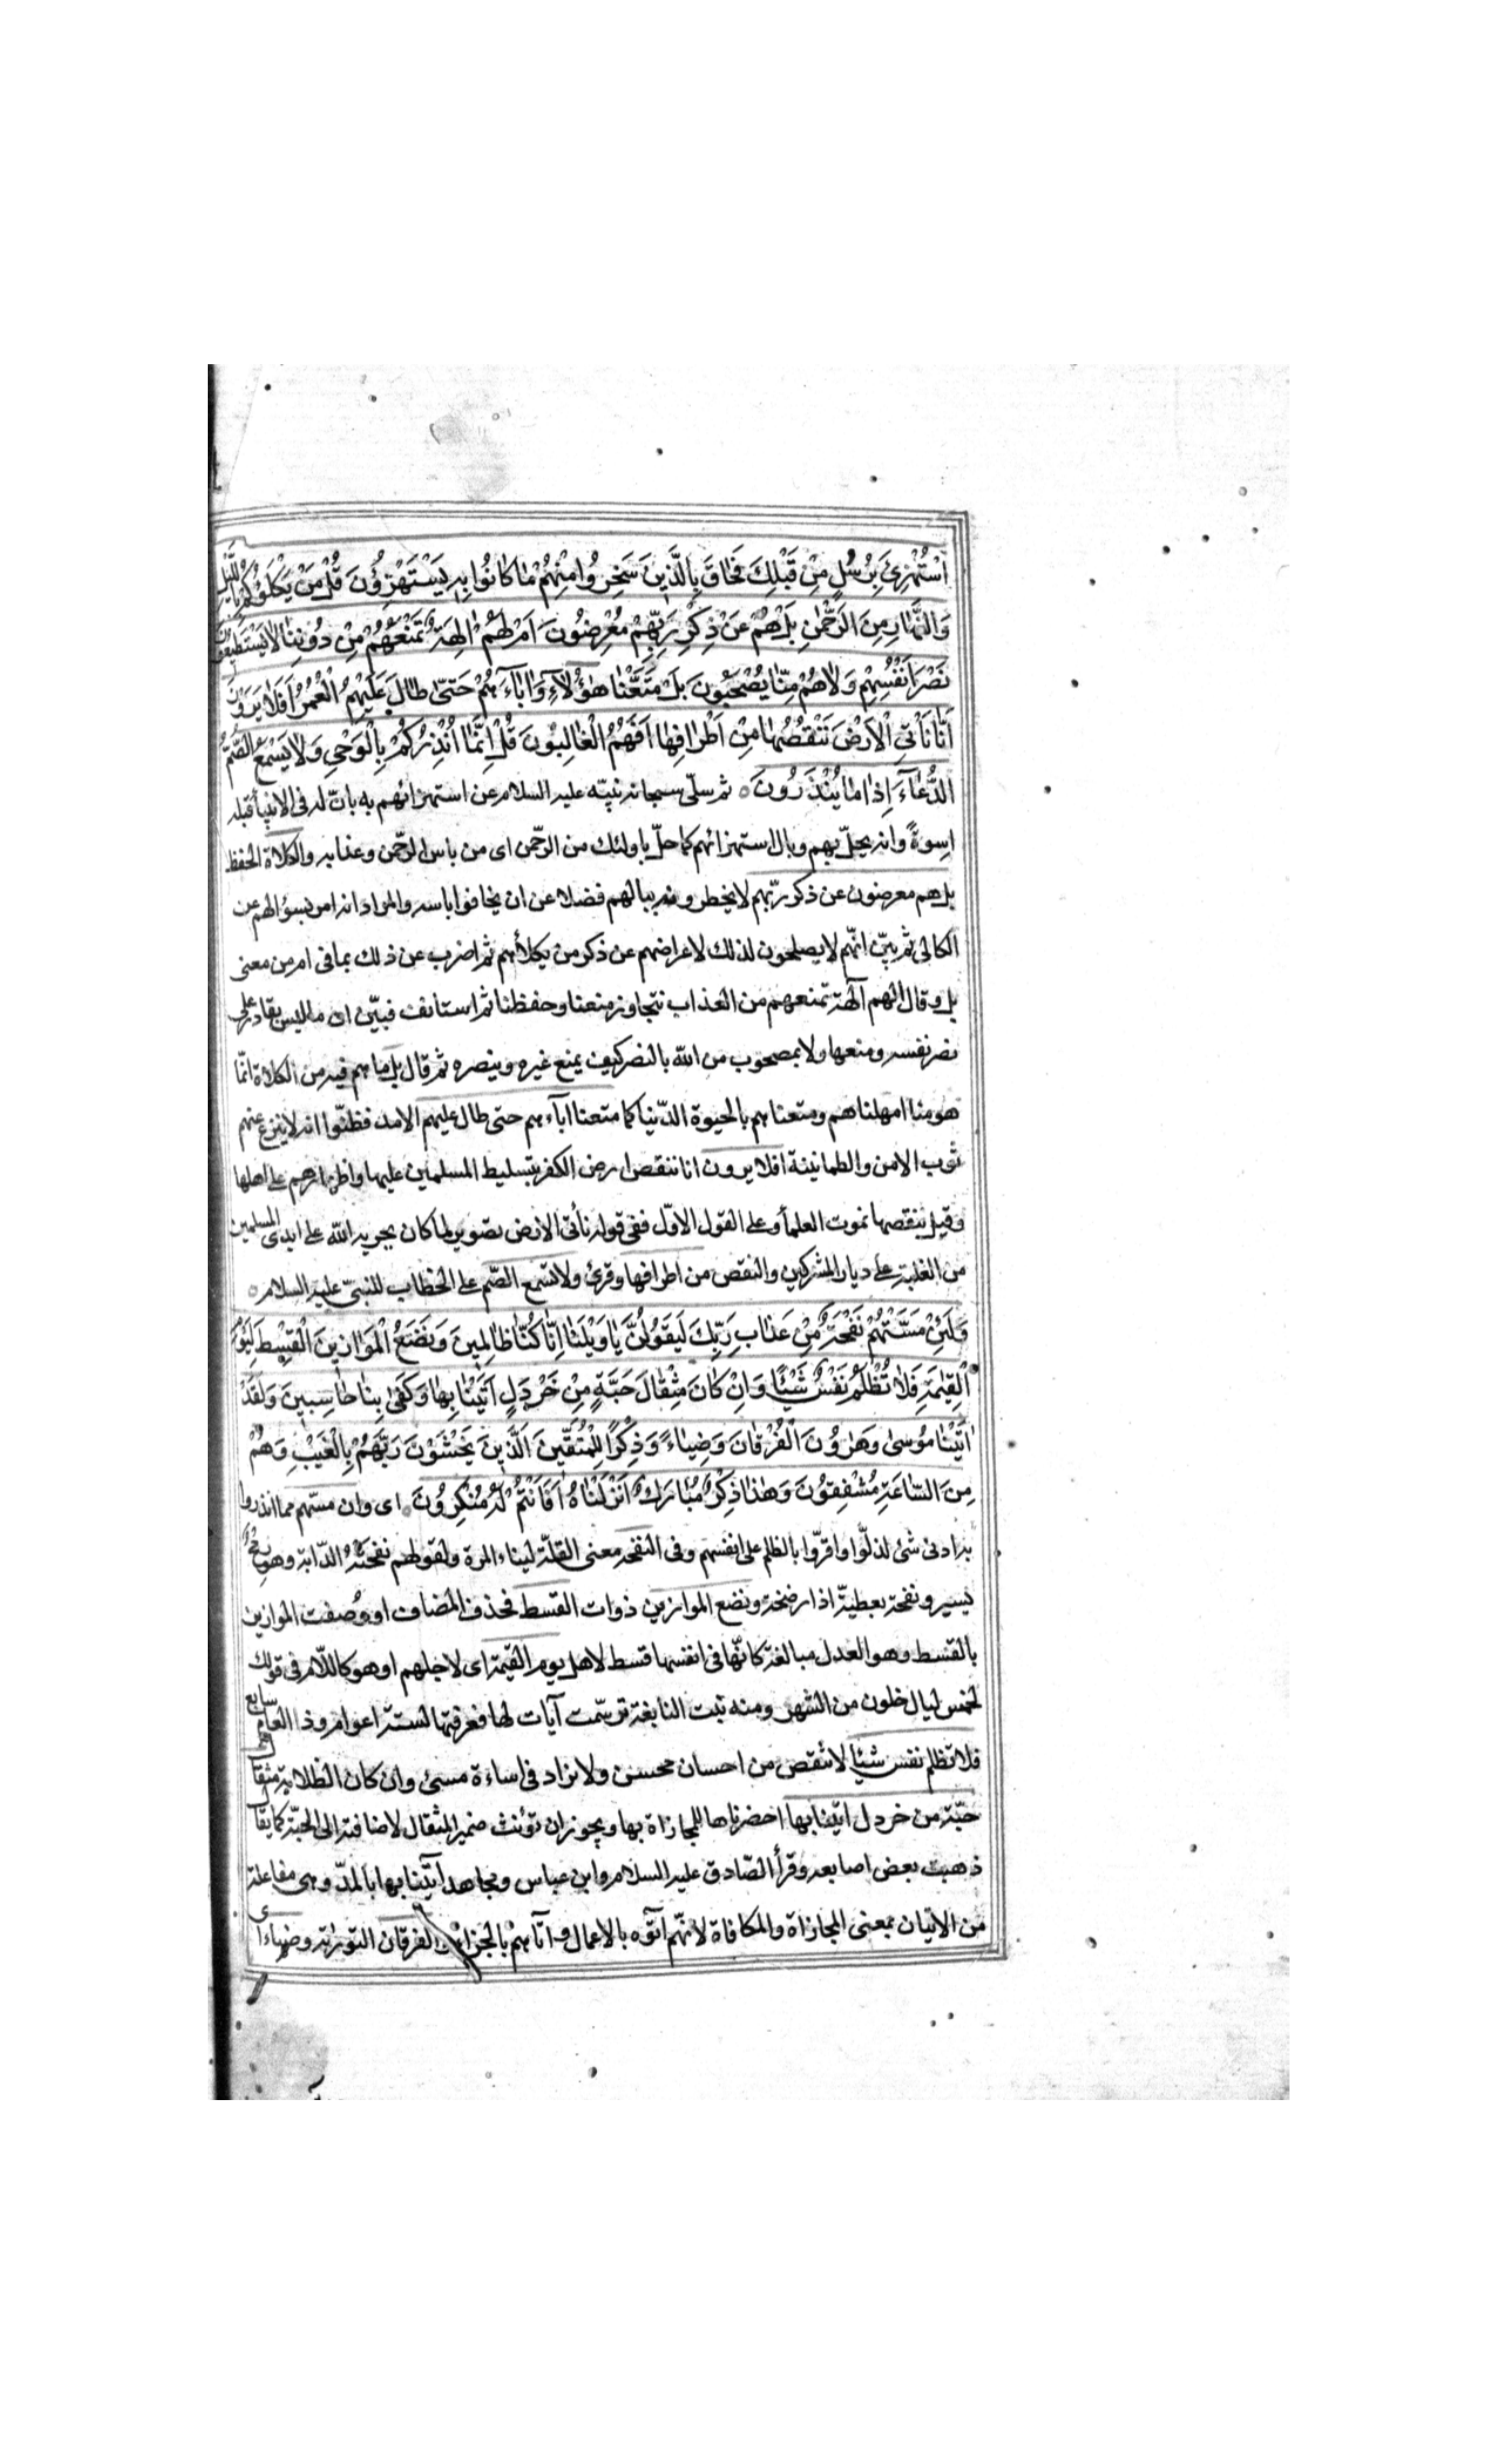 اسْتُهْزِئَ بِرُسُلٍ مِنْ قَبْلِكَ فَحَاقَ بِالَّذِينَ سَخِرُوا مِنْهُمْ مَا كَانُوا بِهِ يَسْتَهْزِؤُنَ قُلْ مَنْ يَكْلَؤُكُمْ بِاللَّيْلِ
وَالنَّهَارِ مِنَ الرَّحْمٰنِ بَلْ هُمْ عَنْ ذِكْرِ رَبِّهِمْ مُعْرِضُونَ اَمْ لَهُمْ اٰلِهَةٌ تَمْنَعُهُمْ مِنْ دُونِنَا لَا يَسْتَطِيعُونَ
نَصْرَ اَنْفُسِهِمْ وَلَا هُمْ مِنَّا يُصْحَبُونَ بَلْ مَتَّعْنَا هٰؤُلَاۤءِ وَاٰبَاۤءَهُمْ حَتّٰى طَالَ عَلَيْهِمُ الْعُمُرُ اَفَلَا يَرَوْنَ
اَنَّا نَأْتِى الْاَرْضَ نَنْقُصُهَا مِنْ اَطْرَافِهَا اَفَهُمُ الْغَالِبُونَ قُلْ اِنَّمَا اُنْذِرُكُمْ بِالْوَحْيِ وَلَا يَسْمَعُ الصُّمُّ
الدُّعَاۤءَ اِذَا مَا يُنْذَرُونَ ه ثم سلّى سبحانه نبيّه عليه السلام عن استهزائهم به بانّ له فى الانبيآء قبله
اسوةً وانه يحلّ بهم وبال استهزائهم كما حلّ باولئك من الرحمن اى من باس الرحمن وعذابه والكلاة الحفظ
بل هم معرضون عن ذكر ربّهم لا يخطرونه ببالهم فضلا عن ان يخافوا باسه والمراد انه امر بسؤالهم عن
الكالئ ثم بيّن انّهم لا يصلحون لذلك لاعراضهم عن ذكر من يكلأهم ثم اضرب عن ذلك بما فى ام من معنى
بل وقال الهم آلهة تمنعهم من العذاب تتجاوز منعنا وحفظنا ثم استانف فبيّن ان ما ليس بقادر على
نصر نفسه ومنعها ولا بمصحوب من الله بالنصر كيف يمنع غيره وينصره ثم قال بل ما هم فيه من الكلاة انّما
هو منا امهلناهم ومتعناهم بالحيوة الدّنيا كما متعنا آباءهم حتى طال عليهم الامد فظنّوا انه لا ينزع عنهم
ثوب الامن والطمانينة افلا يرون انا ننقص ارض الكفر بتسليط المسلمين عليها واظهارهم على اهلها
وقيل ننقصها بموت العلمآء وعلى القول الاوّل ففى قوله نأتى الارض تصوير لما كان يجريه الله على ايدى المسلمين
من الغلبة على ديار المشركين والنقص من اطرافها وقرئ ولا تسمع الصّم على الخطاب للنبىّ عليه السلام ه
وَلَئِنْ مَسَّتْهُمْ نَفْحَةٌ مِنْ عَذَابِ رَبِّكَ لَيَقُولُنَّ يَا وَيْلَنَا اِنَّا كُنَّا ظَالِمِينَ وَنَضَعُ الْمَوَازِينَ الْقِسْطَ لِيَوْمِ
الْقِيٰمَةِ فَلَا تُظْلَمُ نَفْسٌ شَيْئًا وَاِنْ كَانَ مِثْقَالَ حَبَّةٍ مِنْ خَرْدَلٍ اَتَيْنَا بِهَا وَكَفٰى بِنَا حَاسِبِينَ وَلَقَدْ
اٰتَيْنَا مُوسٰى وَهٰرُونَ الْفُرْقَانَ وَضِيَاۤءً وَذِكْرًا لِلْمُتَّقِينَ اَلَّذِينَ يَخْشَوْنَ رَبَّهُمْ بِالْغَيْبِ وَهُمْ
مِنَ السَّاعَةِ مُشْفِقُونَ وَهٰذَا ذِكْرٌ مُبَارَكٌ اَنْزَلْنَاهُ اَفَاَنْتُمْ لَهُ مُنْكِرُونَ ه اى وان مسّهم مما انذروا
به ادنى شئ لذلّوا واقرّوا بالظلم على انفسهم وفى النفحة معنى القلّة لبناء المرة ولقولهم نفحته الدّابة وهو رمح
يسير ونفحه بعطيّة اذا رضخه ونضع الموازين ذوات القسط فحذف المضاف او وُصفت الموازين
بالقسط وهو العدل مبالغة كانّها فى انفسها قسط لاهل يوم القيمة اى لاجلهم او هو كاللّام فى قولك
لخمس ليال خلون من الشهر ومنه بيت النابغة ترسّمت آيات لها فعرفتها لستة اعوام وذا العام سابع
فلا تظلم نفس شيئا لا ننقص من احسان محسن ولا نزاد فى اساءة مسئ وان كان الظلامة مثقال
حبّة من خردل اتينا بها احضرناها للمجازاة بها ويجوز ان تؤنث ضمير المثقال لاضافته الى الحبّة كما يقال
ذهبت بعض اصابعه وقرأ الصّادق عليه السلام وابن عباس ومجاهد آتينا بها بالمدّ وهى مفاعلة
من الاتيان بمعنى المجازاة والمكافاة لانّهم آتوه بالاعمال وآتاهم بالجزاء الفرقان التورٰية وضياءا